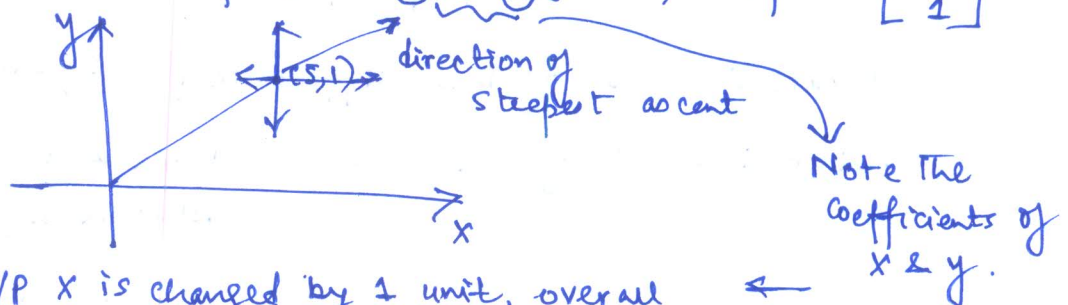 [ 1 ]
y
(5,1)
direction of
steepest ascent
Note The
coefficients of
x & y.
x
/P x is changed by 1 unit, overall ←